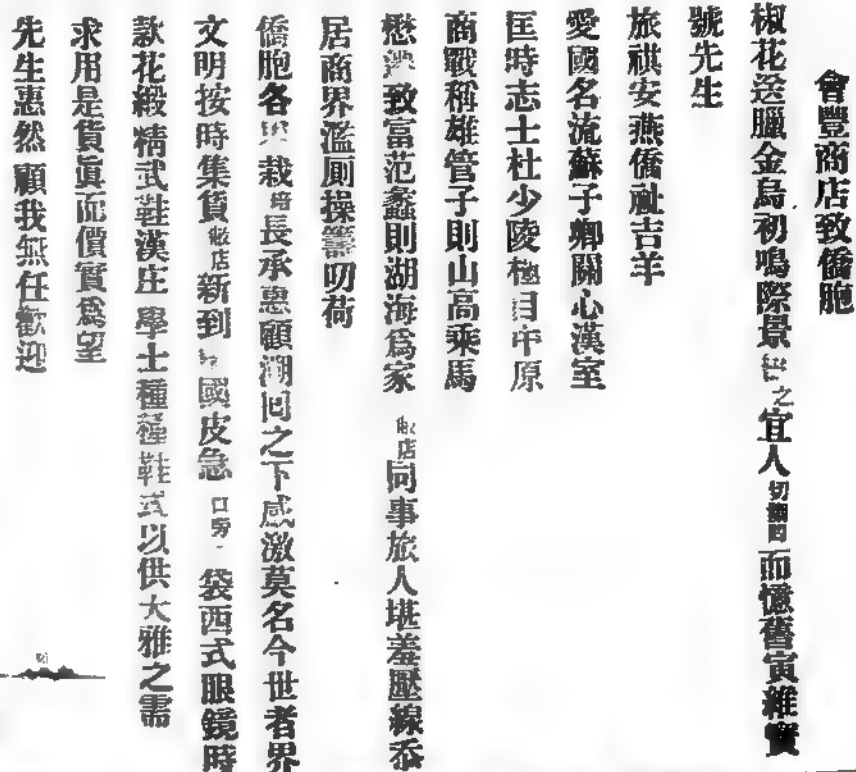 會豐商店致僑胞
椒花送臘金烏初鳴際景 之宜人切 而憶舊寅雜實
號先生
旅祺安燕僑祉吉羊
愛國名流蘇子卿關心漢室
匡時志士杜少陵極目中原
商戰稱雄管子則山高乘馬
懋遷致富范蠡則湖海爲家 敝店同事旅人堪羞壓線忝
居商界濫厠操籌叨荷
僑胞各界栽培長承惠顧溯囘之下感激莫名今世者界
文明按時集貨敝店新到 國皮急 口旁 袋西式眼鏡時
款花緞精武鞋漢庄學士種種鞋式以供大雅之需
求用是貨眞而價實爲望
先生惠然顧我無任歡迎